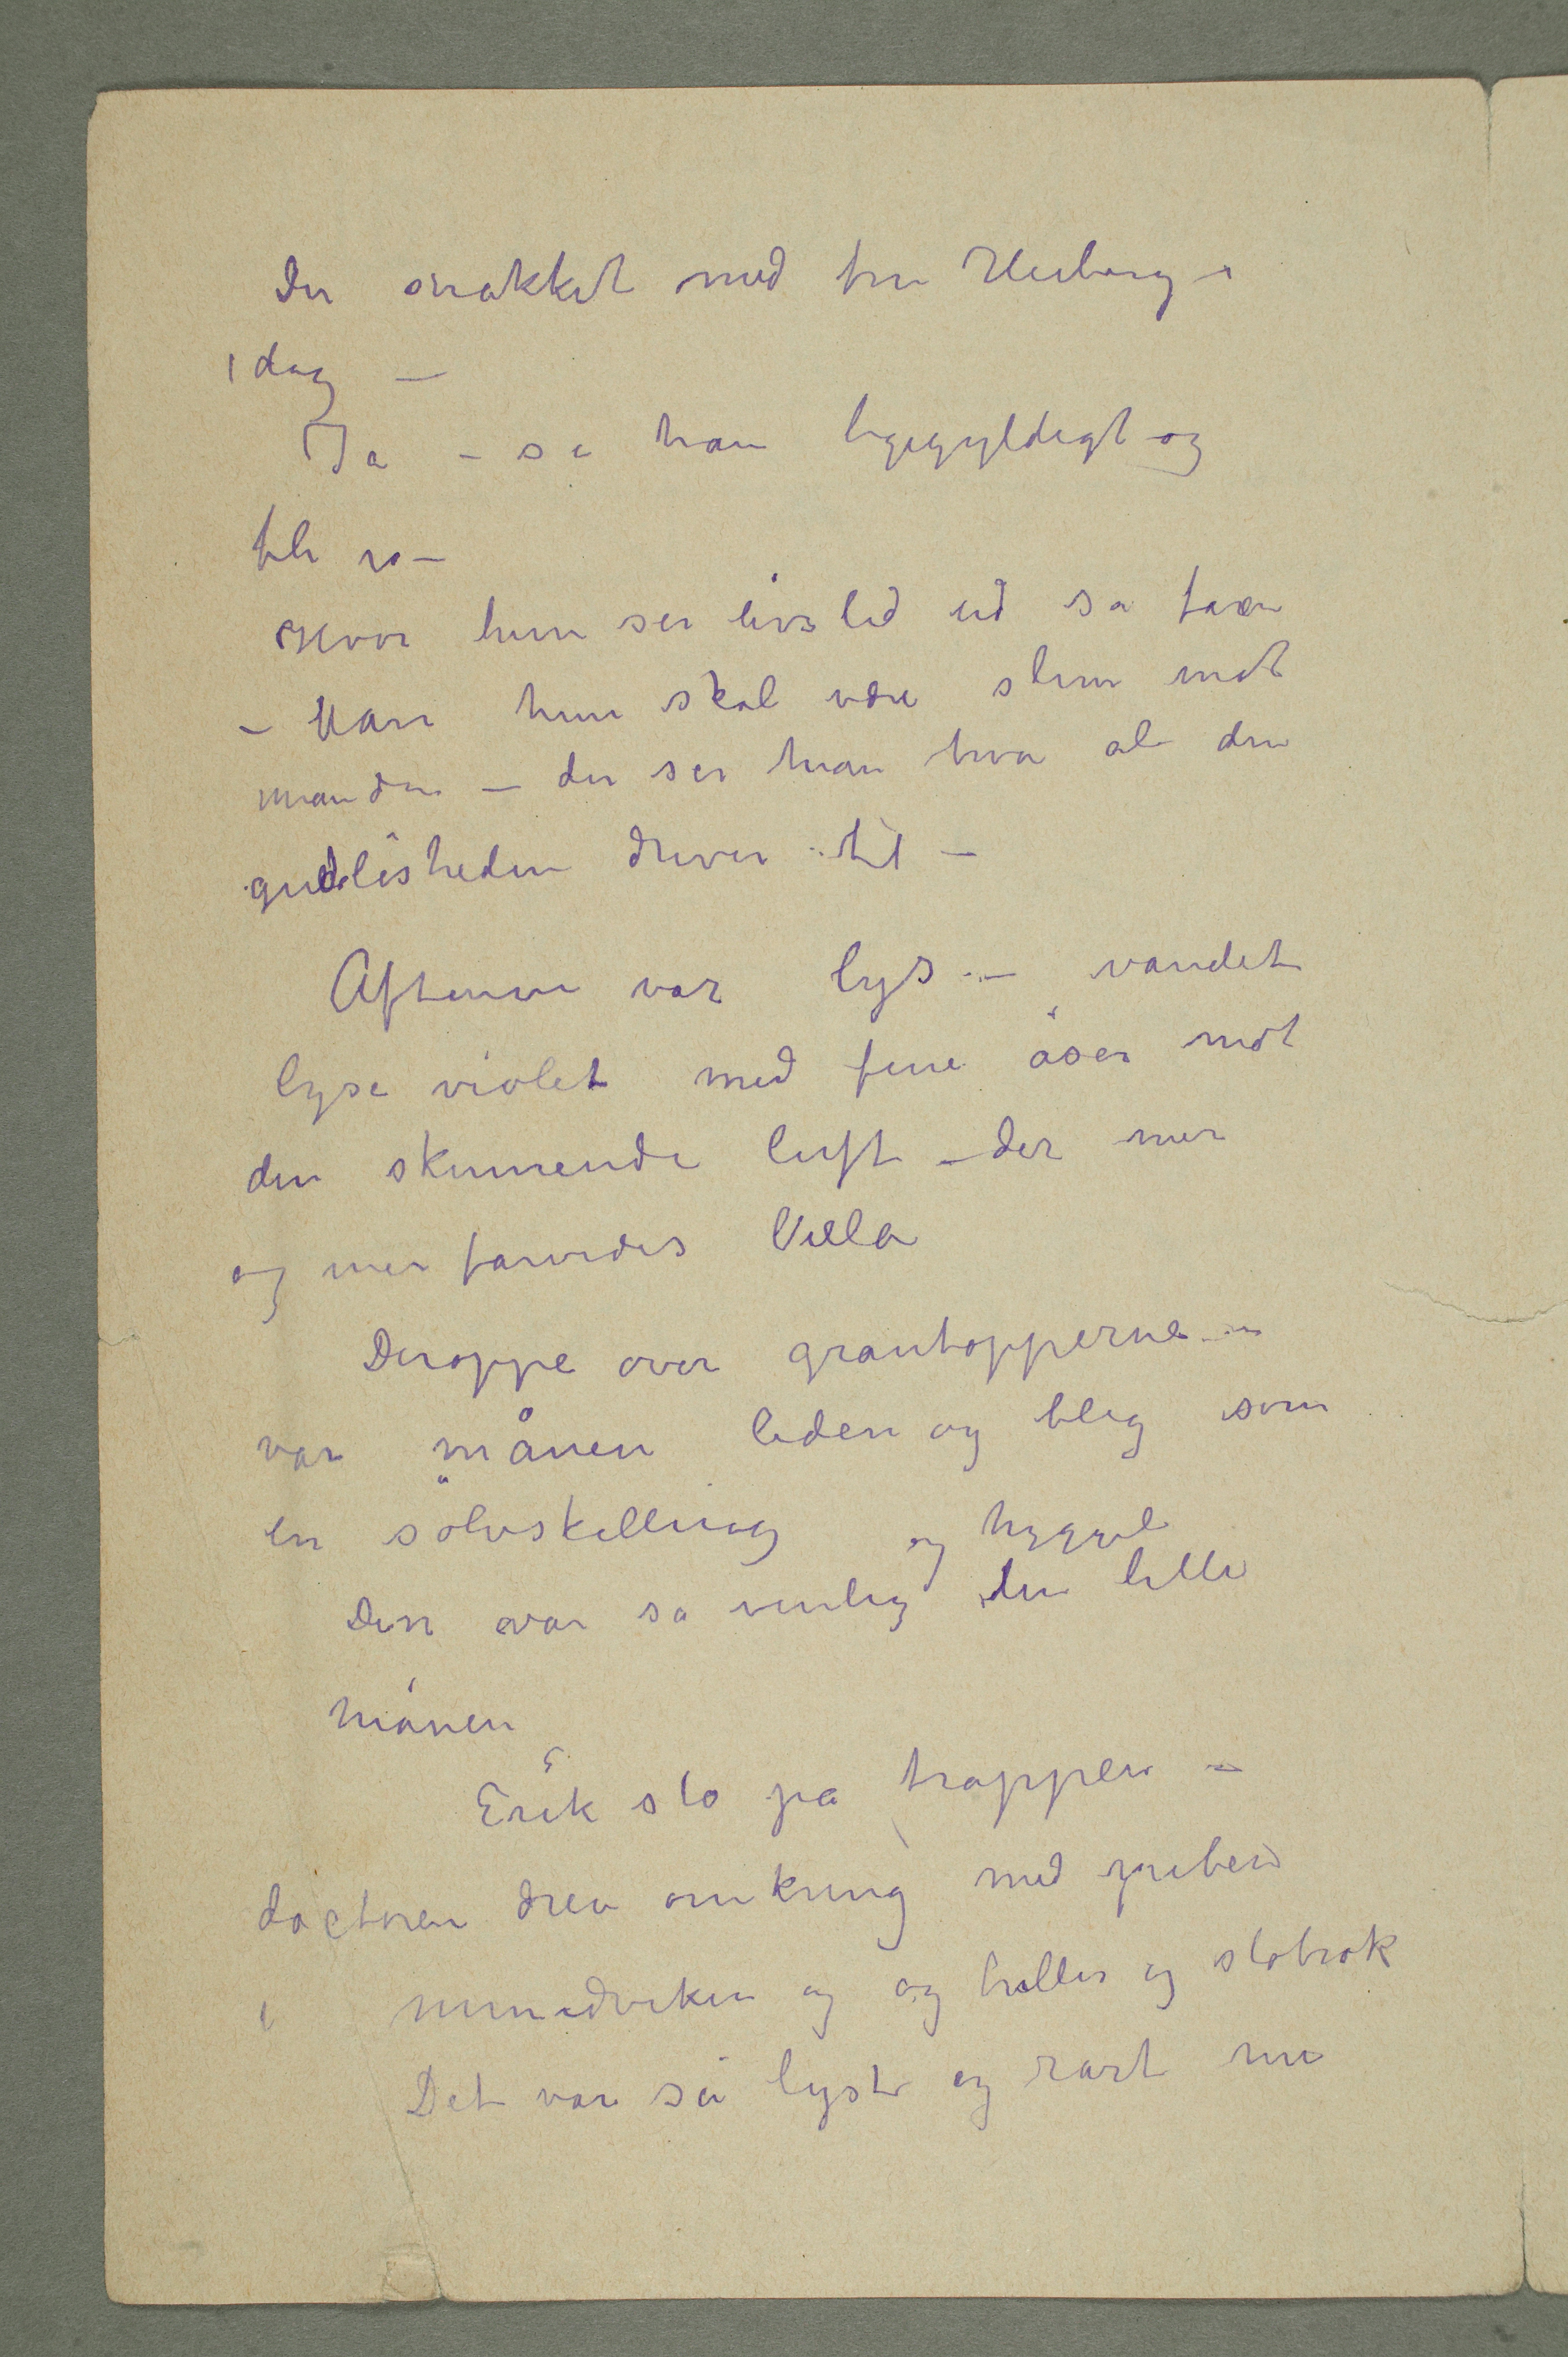 Du snakket med fru Heiberg
idag –
Ja – sa han ligegyldigt og
ble rø –
Hvor hun ser livsled ud sa faren
– Han hun skal være slem mot
manden – der ser man hva al den
gudløsheden driver til –
Aftenen var lys – vandet
lyse violet med fine åser mot
den skinnende luft – der mer
og mer farvedes lilla
Deroppe over grantopperne –
var månen liden og bleg som
en sölvskilling
og hyggel
Den var så venlig den lille
månen
Erik sto på trappen –
doctoren drev omkring med piben
i mundviken og og briller og slobrok
Det var så lyst og rart nu